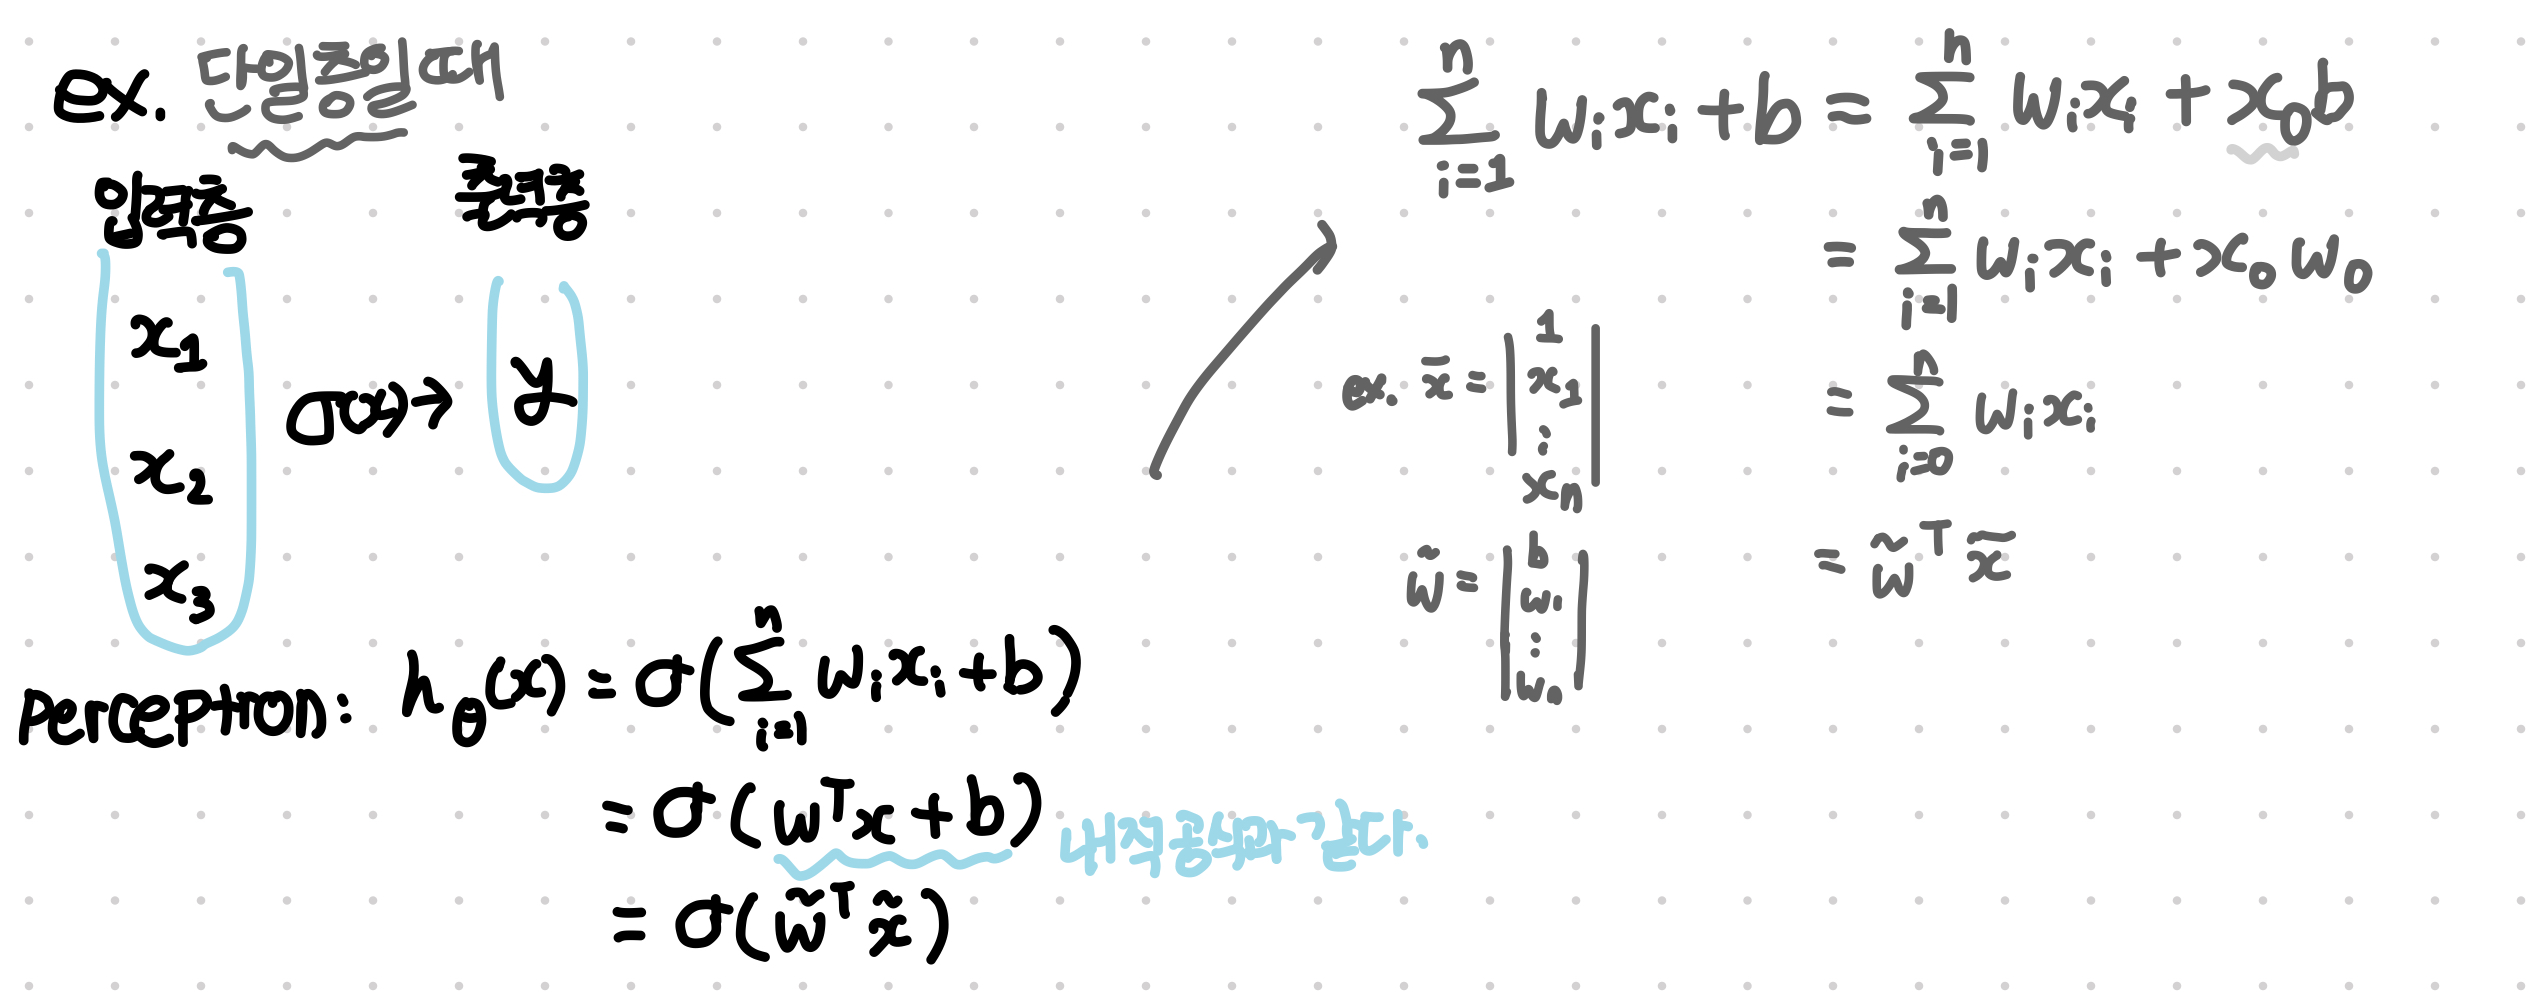 ex. 단일층일때
입력층 출력층
x₁
x₂
x₃
σ(x) →
y
perceptron: h_θ(x) = σ(∑_{i=1}^{n} w_i x_i + b)
= σ(w^T x + b) 내적공식과 같다.
= σ(w̃^T x̃)
∑_{i=1}^{n} w_i x_i + b = ∑_{i=1}^{n} w_i x_i + x₀b
= ∑_{i=1}^{n} w_i x_i + x₀ w₀
= ∑_{i=0}^{n} w_i x_i
= w̃^T x̃
ex. x̄ = | 1
x₁
⋮
x_n |
w̃ = | b
w₁
⋮
w_n |